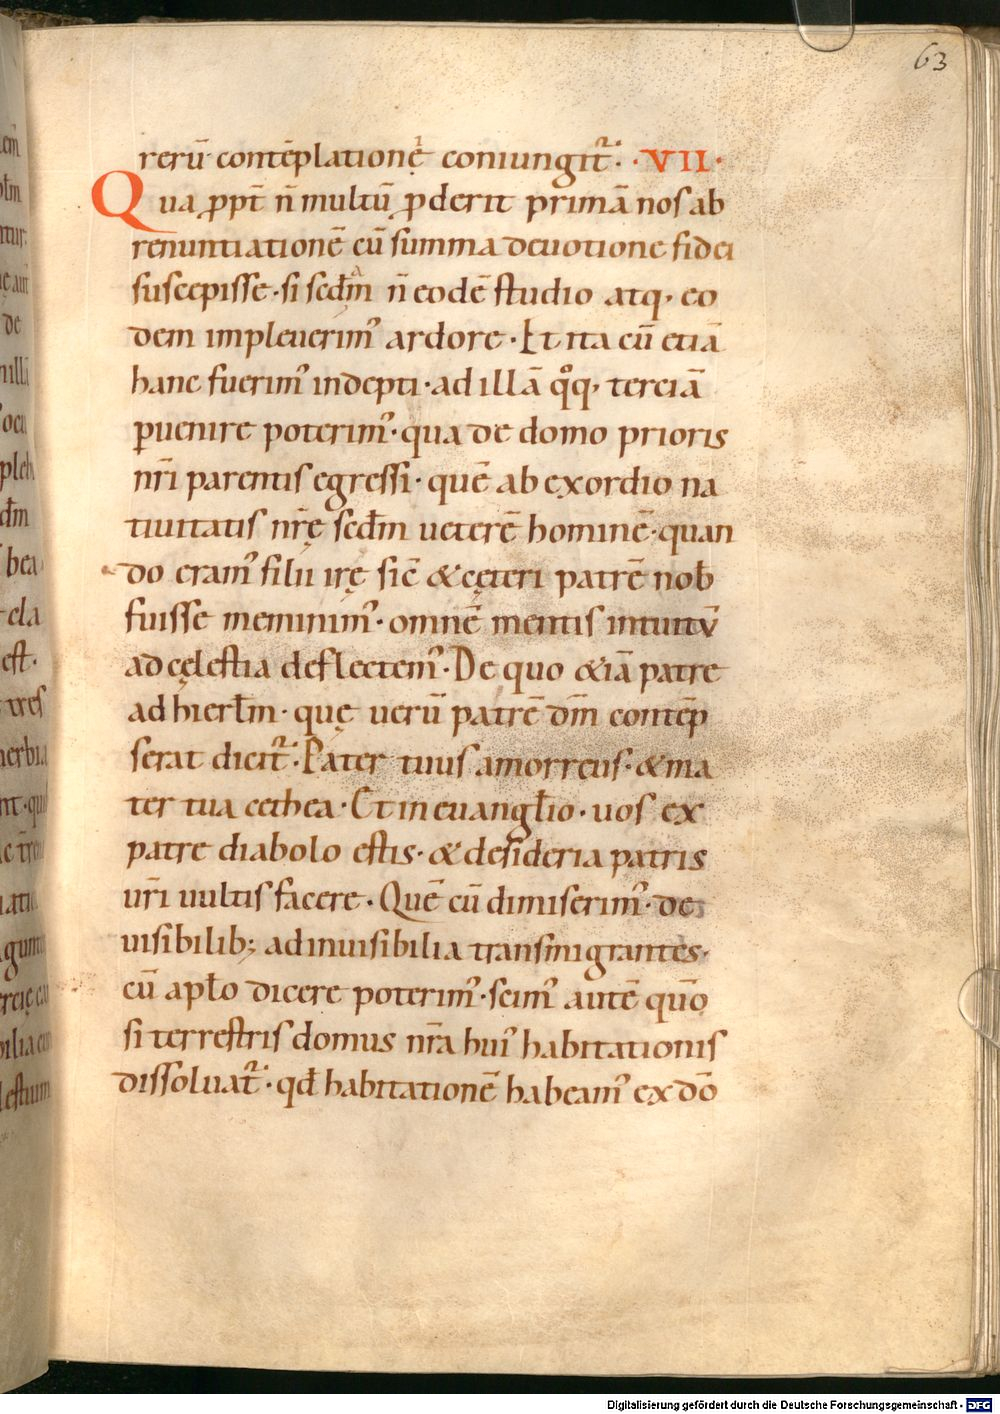 63
rerū contēplationẹ coniungit᷑. · VII ·
Qua ꝓpt̄ n̄ multū ꝓderit primā nos ab
renuntiationē cū summa deuotione fidei
suscepisse · si scđm n̄ eodē studio atq, eo
dem impleuerim᾽ ardore · Et ita cū etiā
hanc fuerim᾽ indepti · ad illā q̊q, terciā
ꝑuenire poterim᾽ · qua de domo prioris
nr̄i parentis egressi · quē ab exordio na
tiuitatis nr̄ę scđm ueterē hominē · quan
do eram᾽ filii irę sic̄ & cęteri patrē nob̄
fuisse meminim᾽ · omnē mentis intuitū
ad cęlestia deflectem᾽ · De quo &iā patre
ad hierłm · quę uerū patrē dm̄ contēp
serat dicit᷑ · Pater tuus amorreus · & ma
ter tua cethea · Et in euangłio · uos ex
patre diabolo estis · & desideria patris
ur̄i uultis facere · Quē cū dimiserim᾽ · de
uisibilib; ad inuisibilia transmigrantes ·
cū apło dicere poterim᾽ · scim᾽ autē quō
si terrestris domus nr̄a hui᾽ habitationis
dissoluat᷑ · qđ habitationē habeam᾽ ex dō
Digitalisierung gefördert durch die Deutsche Forschungsgemeinschaft - DFG